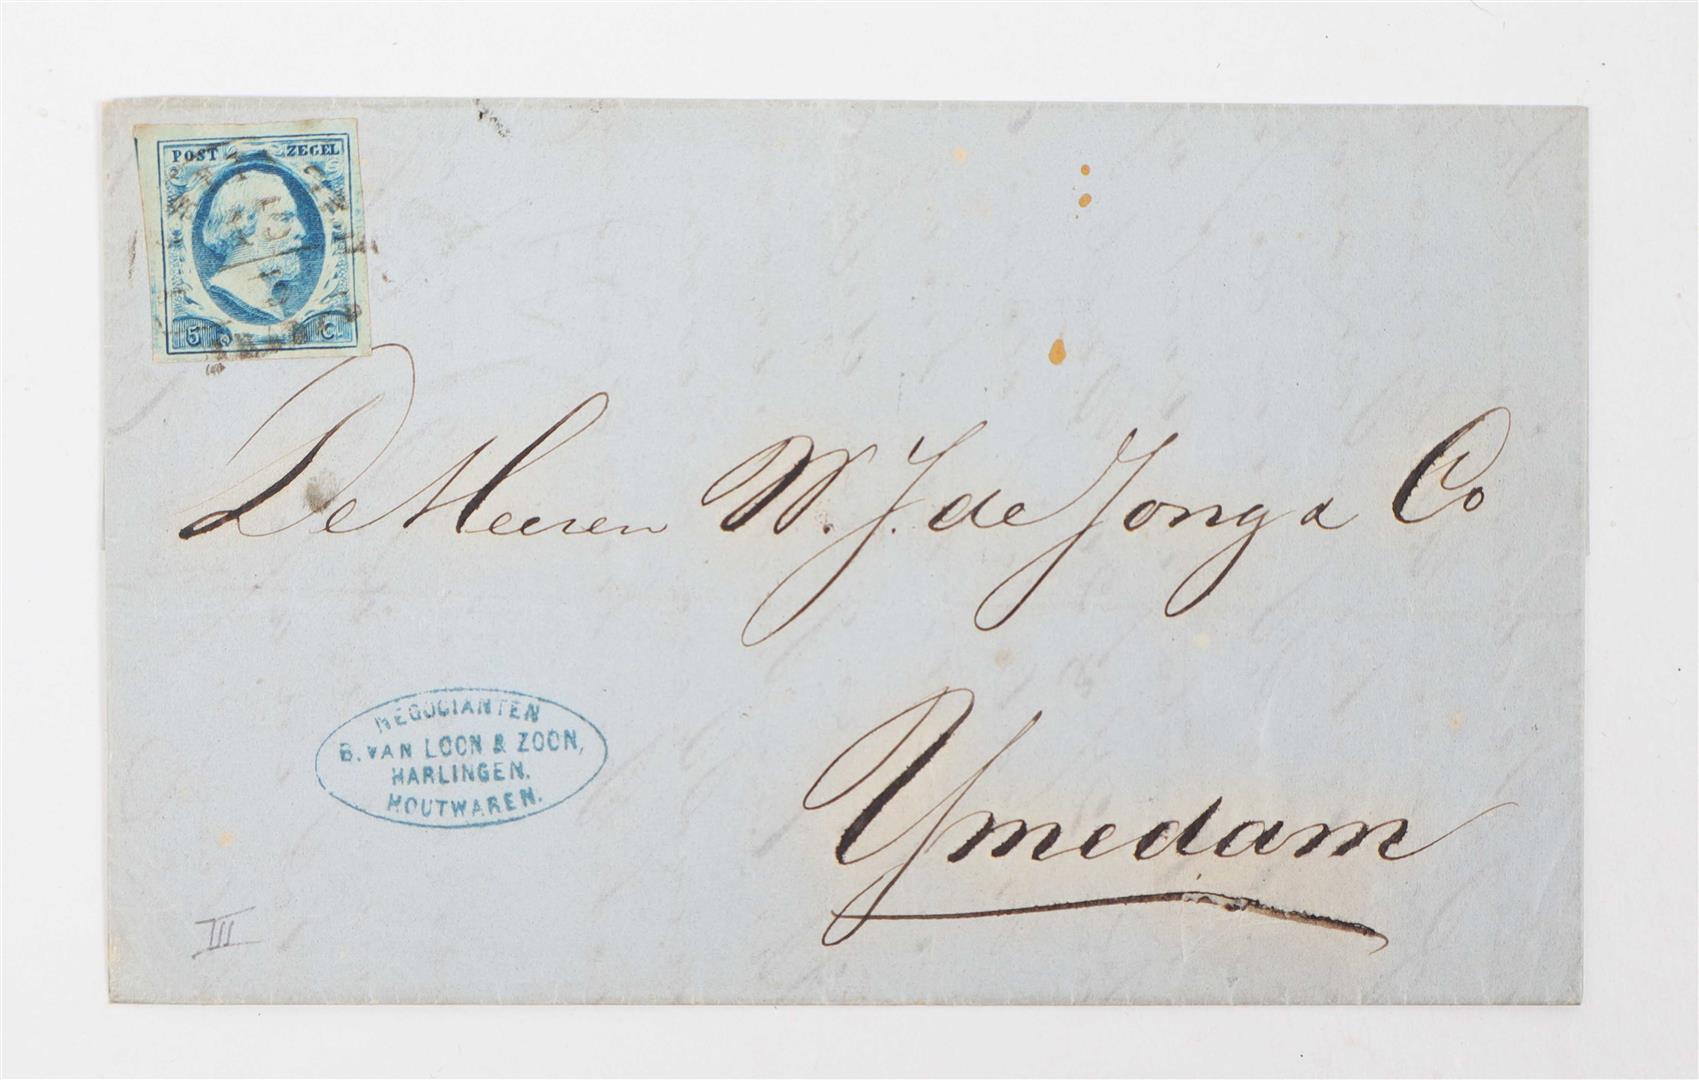 POST ZEGEL
5 C.
De Heeren W. J. de Jong & Co
Ymedam
NEGOCIANTEN
B. VAN LOON & ZOON,
HARLINGEN.
HOUTWAREN.
III